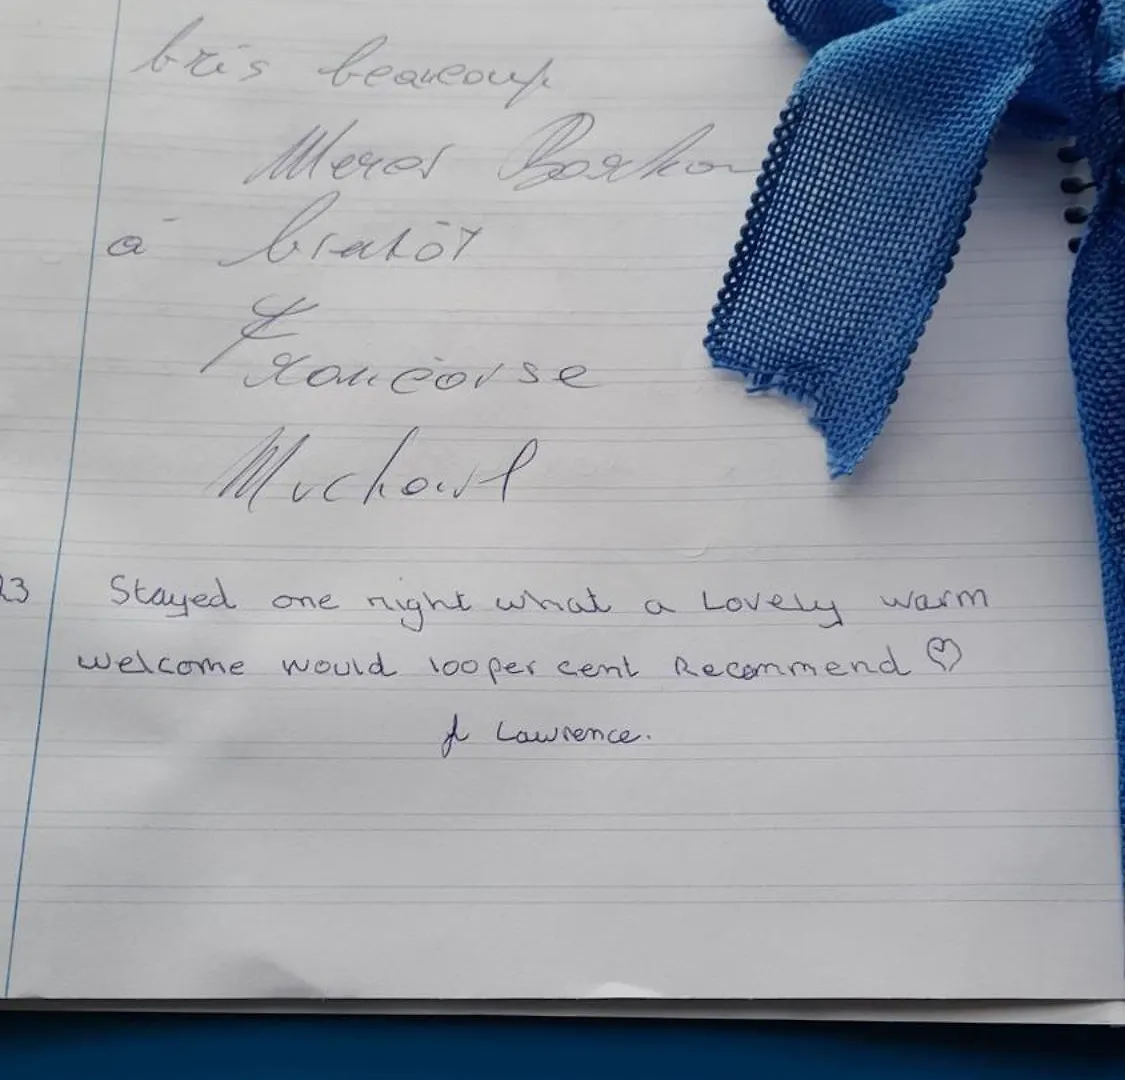 très beaucoup
Merci
à bientôt
Françoise
Michaël
23 Stayed one night what a Lovely warm
welcome would 100 per cent Recommend ♡
J Lawrence.